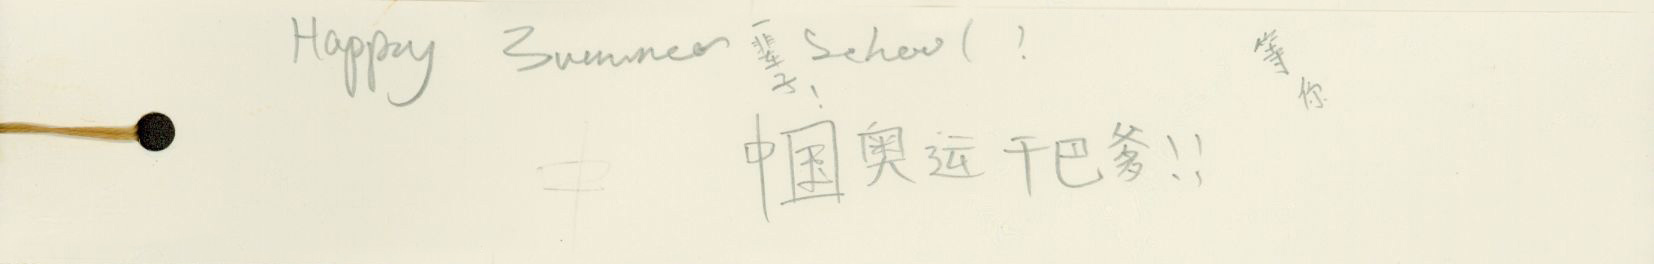 Happy Summer School !
一輩子!
等你
中国奥运干巴爹!!
中